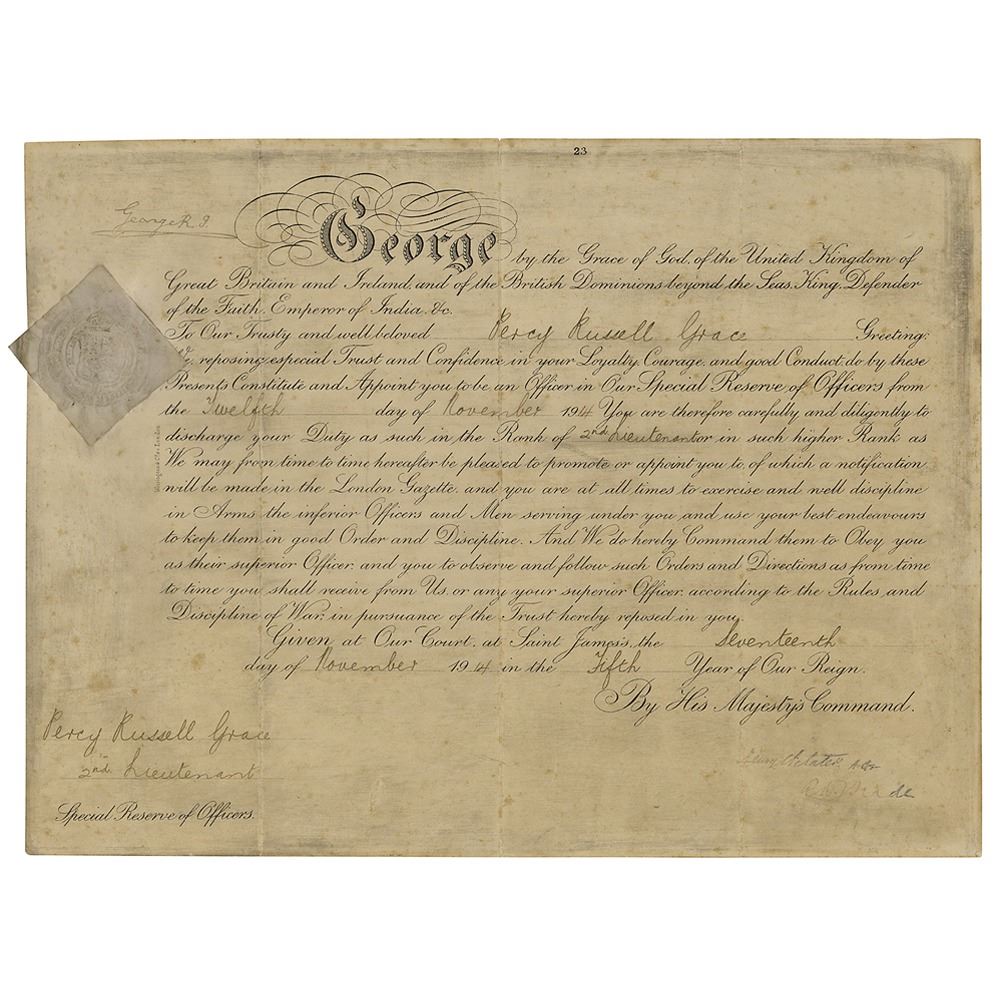 23
George R. I.
George by the Grace of God, of the United Kingdom of
Great Britain and Ireland, and of the British Dominions beyond the Seas, King, Defender
of the Faith, Emperor of India, &c.
To Our Trusty and well beloved Percy Russell Grace Greeting:
We, reposing especial Trust and Confidence in your Loyalty, Courage, and good Conduct, do by these
Presents Constitute and Appoint you to be an Officer in Our Special Reserve of Officers from
the Twelfth day of November 1914 You are therefore carefully and diligently to
discharge your Duty as such in the Rank of 2nd Lieutenant or in such higher Rank as
We may from time to time hereafter be pleased to promote or appoint you to, of which a notification
will be made in the London Gazette, and you are at all times to exercise and well discipline
in Arms the inferior Officers and Men serving under you and use your best endeavours
to keep them in good Order and Discipline. And We do hereby Command them to Obey you
as their superior Officer, and you to observe and follow such Orders and Directions as from time
to time you shall receive from Us, or any your superior Officer, according to the Rules and
Discipline of War, in pursuance of the Trust hereby reposed in you.
Given at Our Court, at Saint James's, the Seventeenth
day of November 1914 in the Fifth Year of Our Reign.
By His Majesty's Command.
Percy Russell Grace
2nd Lieutenant
Special Reserve of Officers.